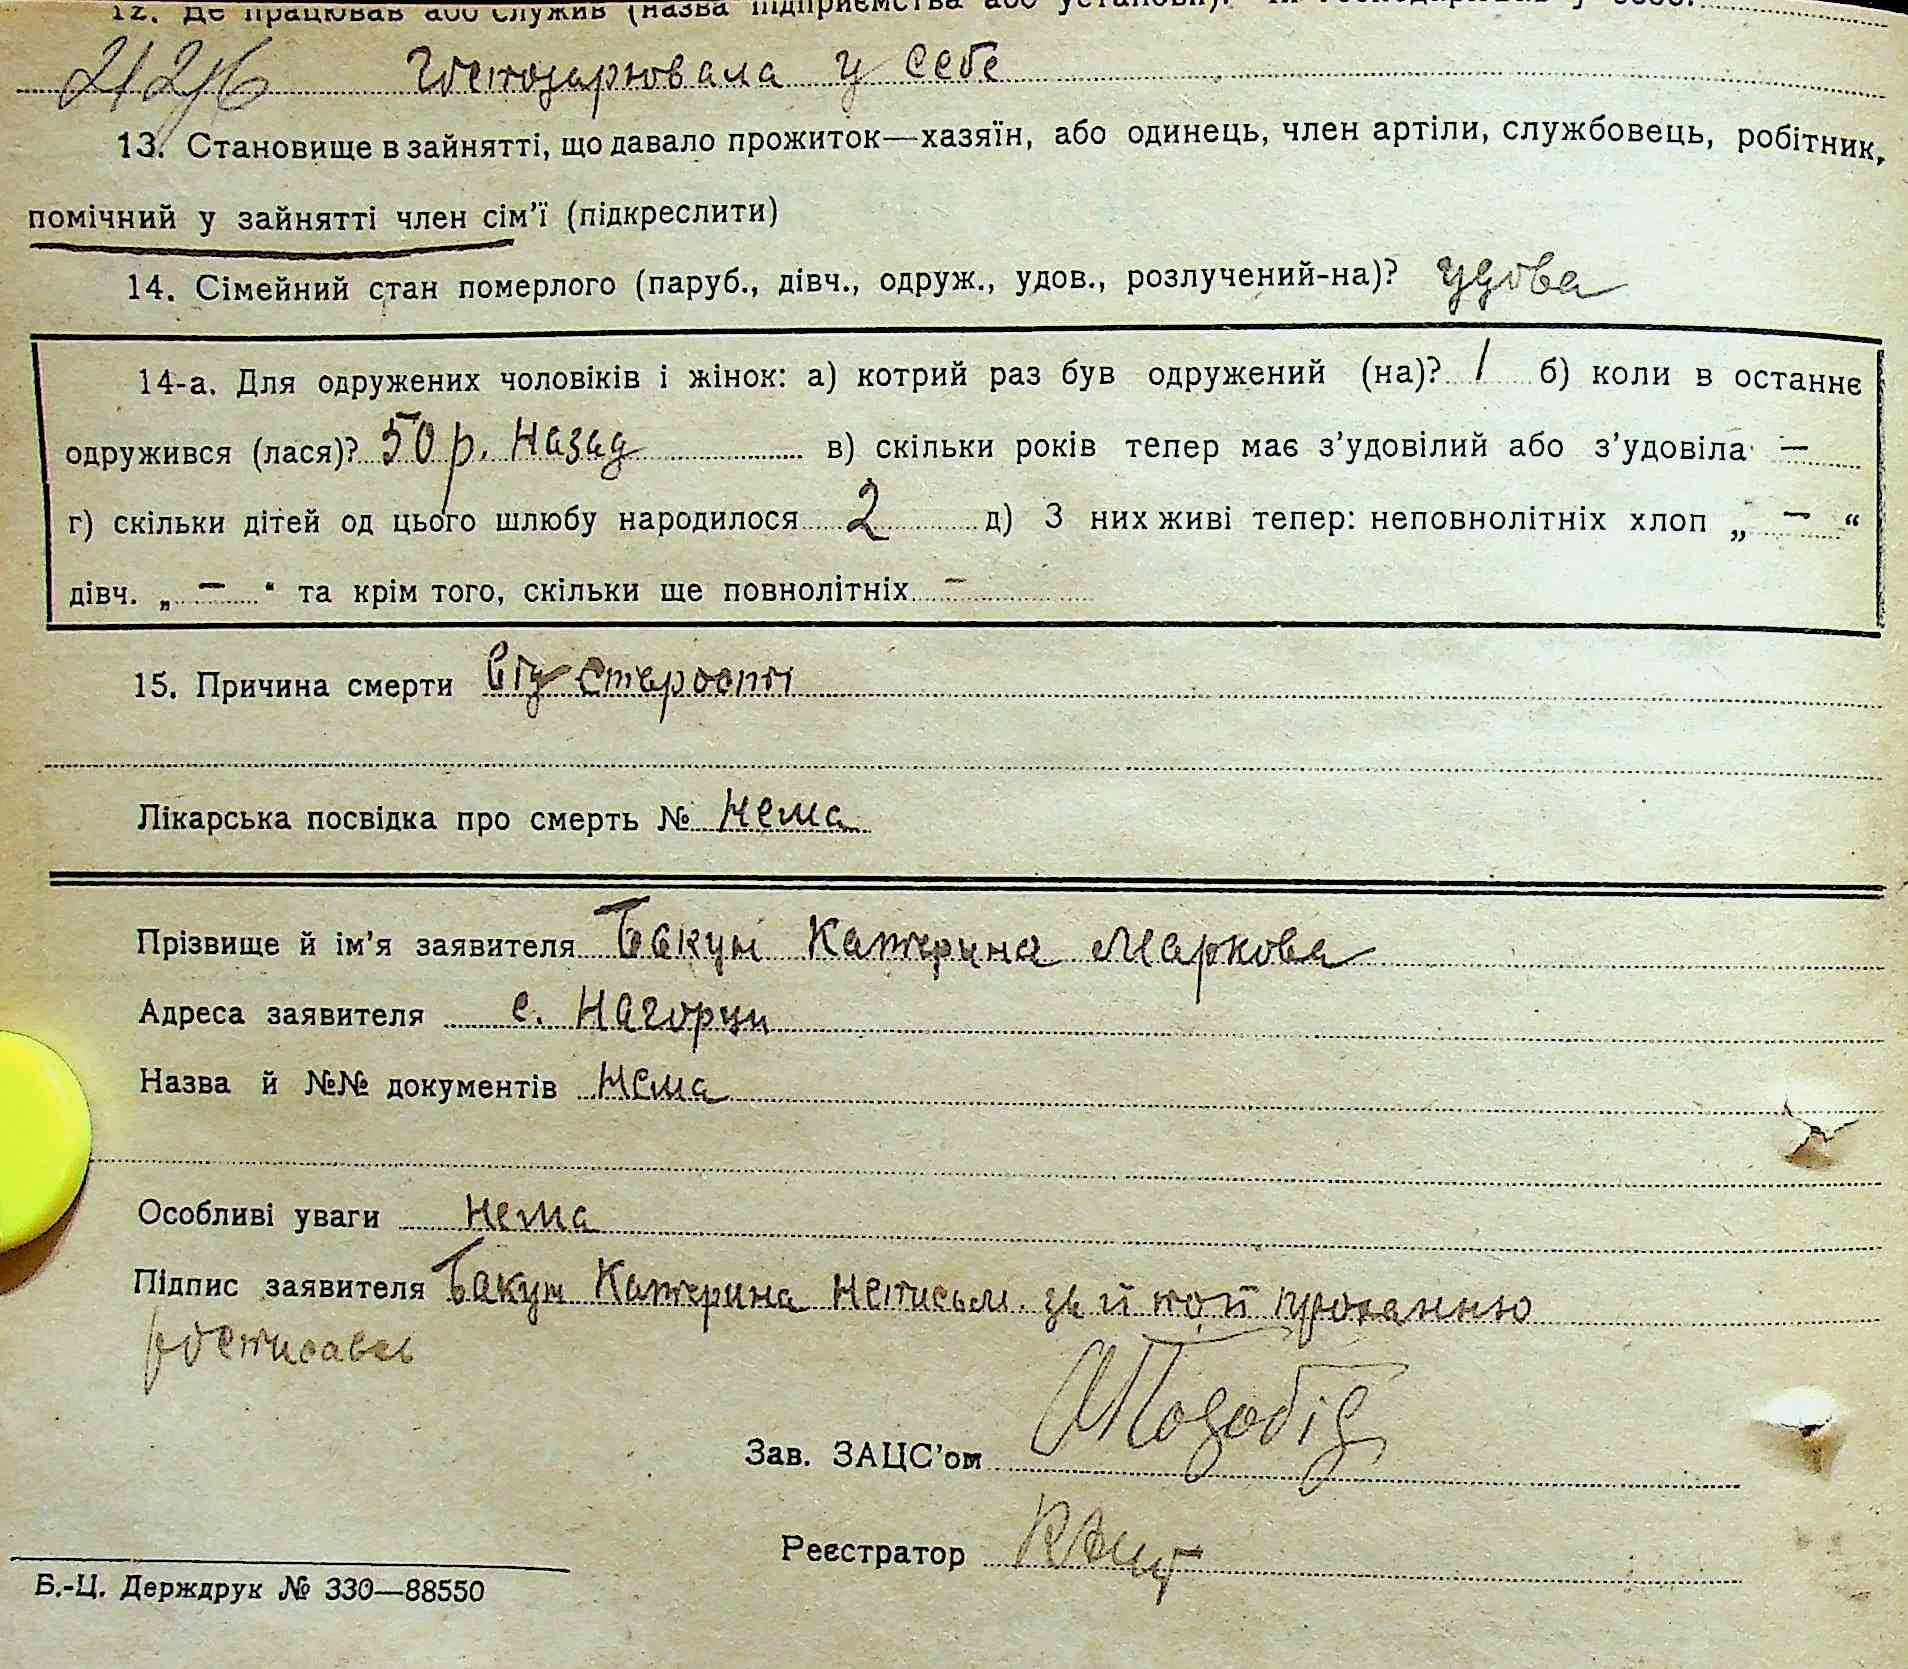 12. Де працював або служив (назва підприємства або установи).
господарювала у себе
13. Становище в зайнятті, що давало прожиток—хазяїн, або одинець, член артіли, службовець, робітник,
помічний у зайнятті член сім'ї (підкреслити)
14. Сімейний стан померлого (паруб., дівч., одруж., удов., розлучений-на)? удова
14-а. Для одружених чоловіків і жінок: а) котрий раз був одружений (на)? 1 б) коли в останнє
одружився (лася)? 50 р. назад в) скільки років тепер має з'удовілий або з'удовіла —
г) скільки дітей од цього шлюбу народилося 2 д) З них живі тепер: неповнолітніх хлоп „ — “
дівч. „ — “ та крім того, скільки ще повнолітніх —
15. Причина смерти від старости
Лікарська посвідка про смерть № нема
Прізвище й ім'я заявителя Бакун Катерина Маркова
Адреса заявителя с. Нагорци
Назва й №№ документів нема
Особливі уваги нема
Підпис заявителя Бакун Катерина неписьм. проханню
росписавсь
Зав. ЗАЦС'ом
Реєстратор
Б.-Ц. Держдрук № 330—88550